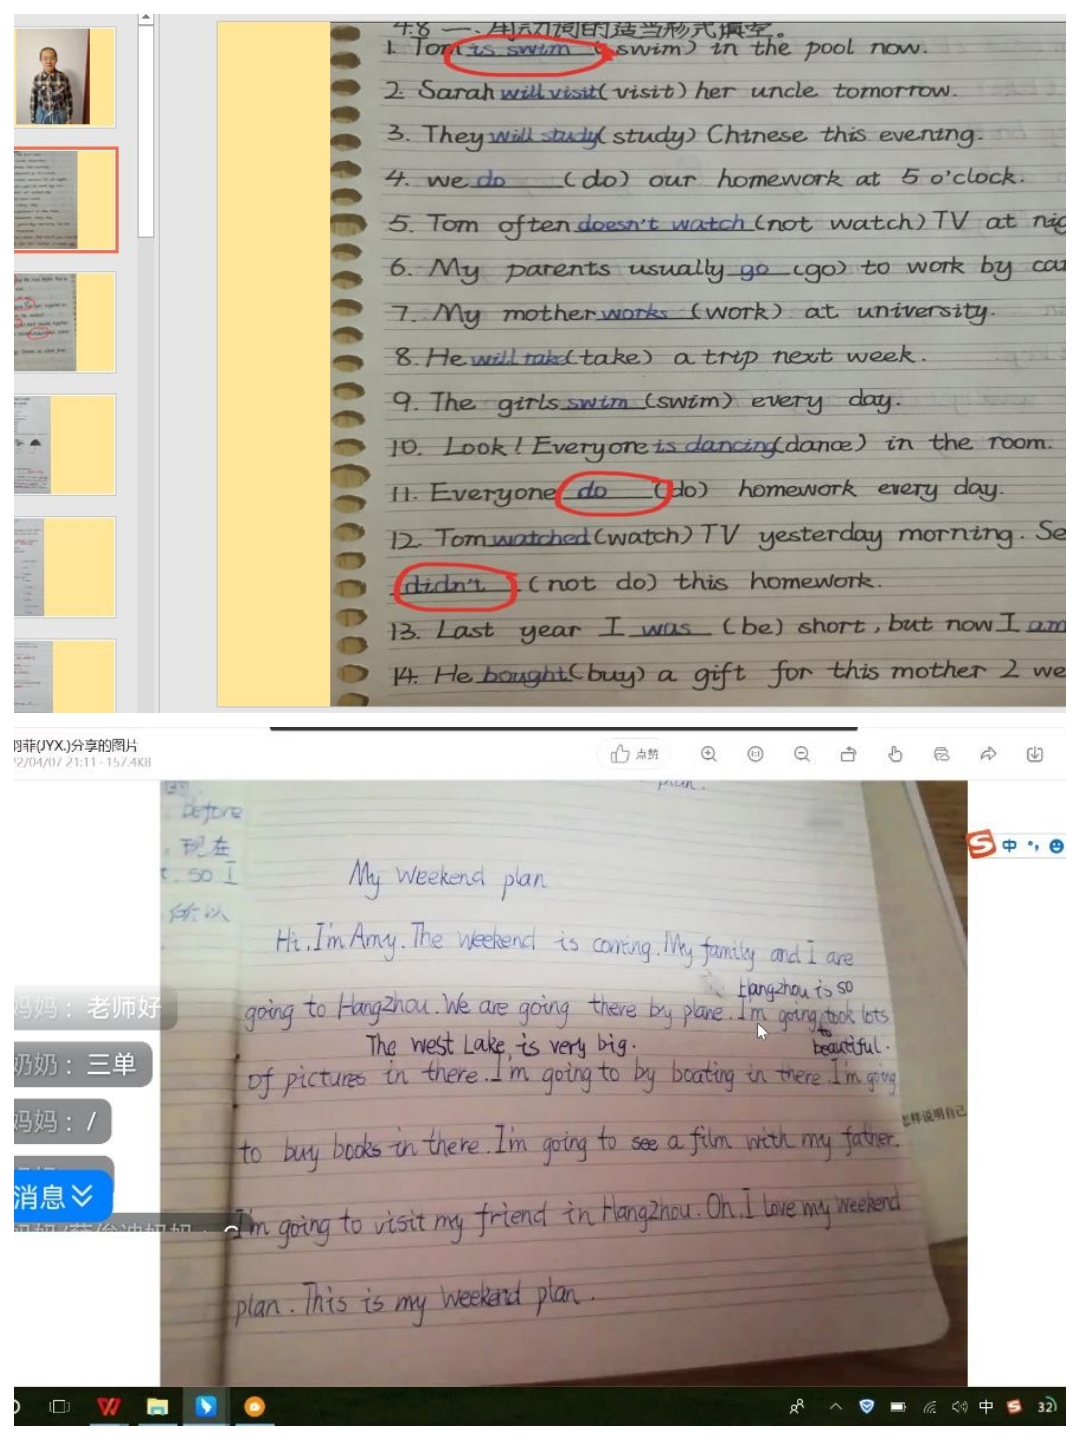 4.8 一、用动词的适当形式填空。
1. Tom is swim (swim) in the pool now.
2. Sarah will visit (visit) her uncle tomorrow.
3. They will study (study) Chinese this evening.
4. we do (do) our homework at 5 o'clock.
5. Tom often doesn't watch (not watch) TV at nig
6. My parents usually go (go) to work by car
7. My mother works (work) at university.
8. He will take (take) a trip next week.
9. The girls swim (swim) every day.
10. Look! Everyone is dancing (dance) in the room.
11. Everyone do (do) homework every day.
12. Tom watched (watch) TV yesterday morning. Se
didn't (not do) this homework.
13. Last year I was (be) short, but now I am
14. He bought (buy) a gift for this mother 2 we
羽菲(JYX.)分享的图片
2/04/07 21:11 - 157.4KB
点赞
plan.
before
现在
t. so I
所以
中
My Weekend plan
Hi, I'm Amy. The weekend is coming. My family and I are
Hangzhou is so
going to Hangzhou. We are going there by plane. I'm going to took lots
The west Lake is very big.
beautiful.
of pictures in there. I'm going to by boating in there. I'm going
to buy books in there. I'm going to see a film with my father.
I'm going to visit my friend in Hangzhou. Oh. I love my weekend
plan. This is my weekend plan.
怎样说明自己
妈妈：老师好
奶奶：三单
妈妈：/
消息
中
32